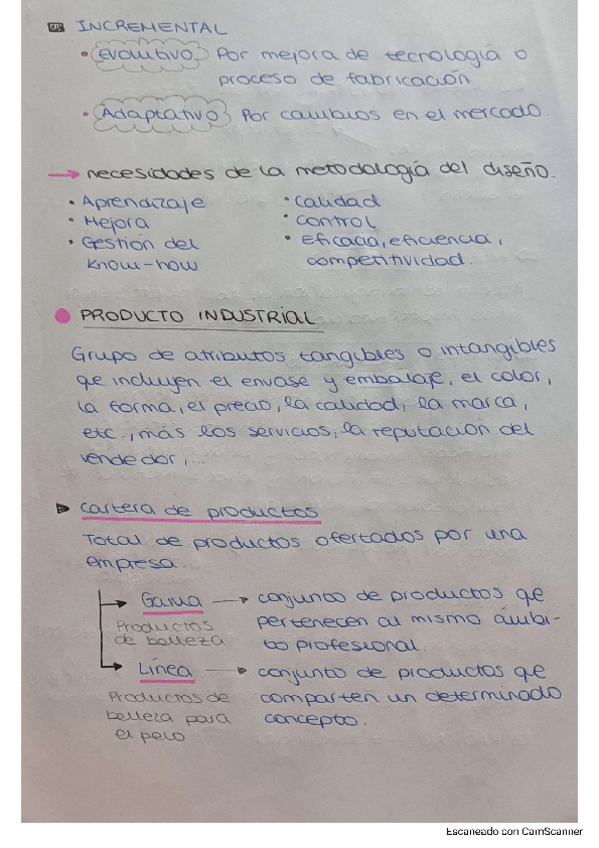 INCREMENTAL
• Evolutivo Por mejora de tecnología o
proceso de fabricación
• Adaptativo Por cambios en el mercado.
→ necesidades de la metodología del diseño.
• Aprendizaje
• Mejora
• Gestión del
Know-how
• Calidad
• Control
• Eficacia, eficiencia,
competitividad.
PRODUCTO INDUSTRIAL
Grupo de atributos tangibles o intangibles
que incluyen el envase y embalaje, el color,
la forma, el precio, la calidad, la marca,
etc., más los servicios, la reputación del
vendedor,...
Cartera de productos
Total de productos ofertados por una
empresa.
→ Gama → conjunto de productos que
pertenecen al mismo ámbi-
to profesional.
Productos
de belleza
→ Línea → conjunto de productos que
comparten un determinado
concepto.
Productos de
belleza para
el pelo
Escaneado con CamScanner